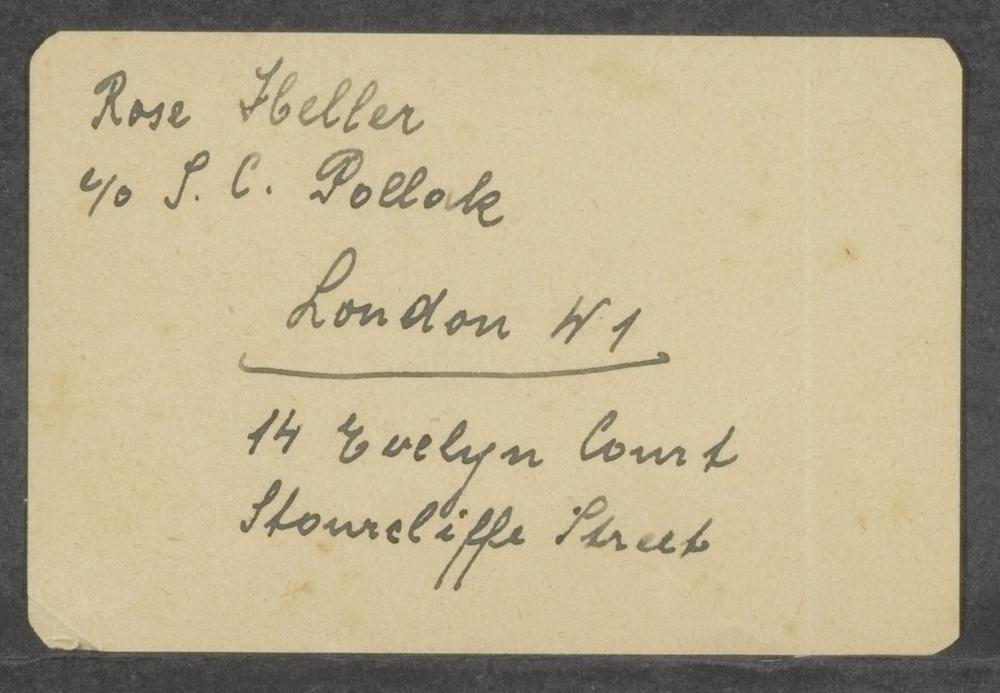 Rose Heller
c/o S. C. Pollak
London W1
14 Evelyn Court
Stourcliffe Street